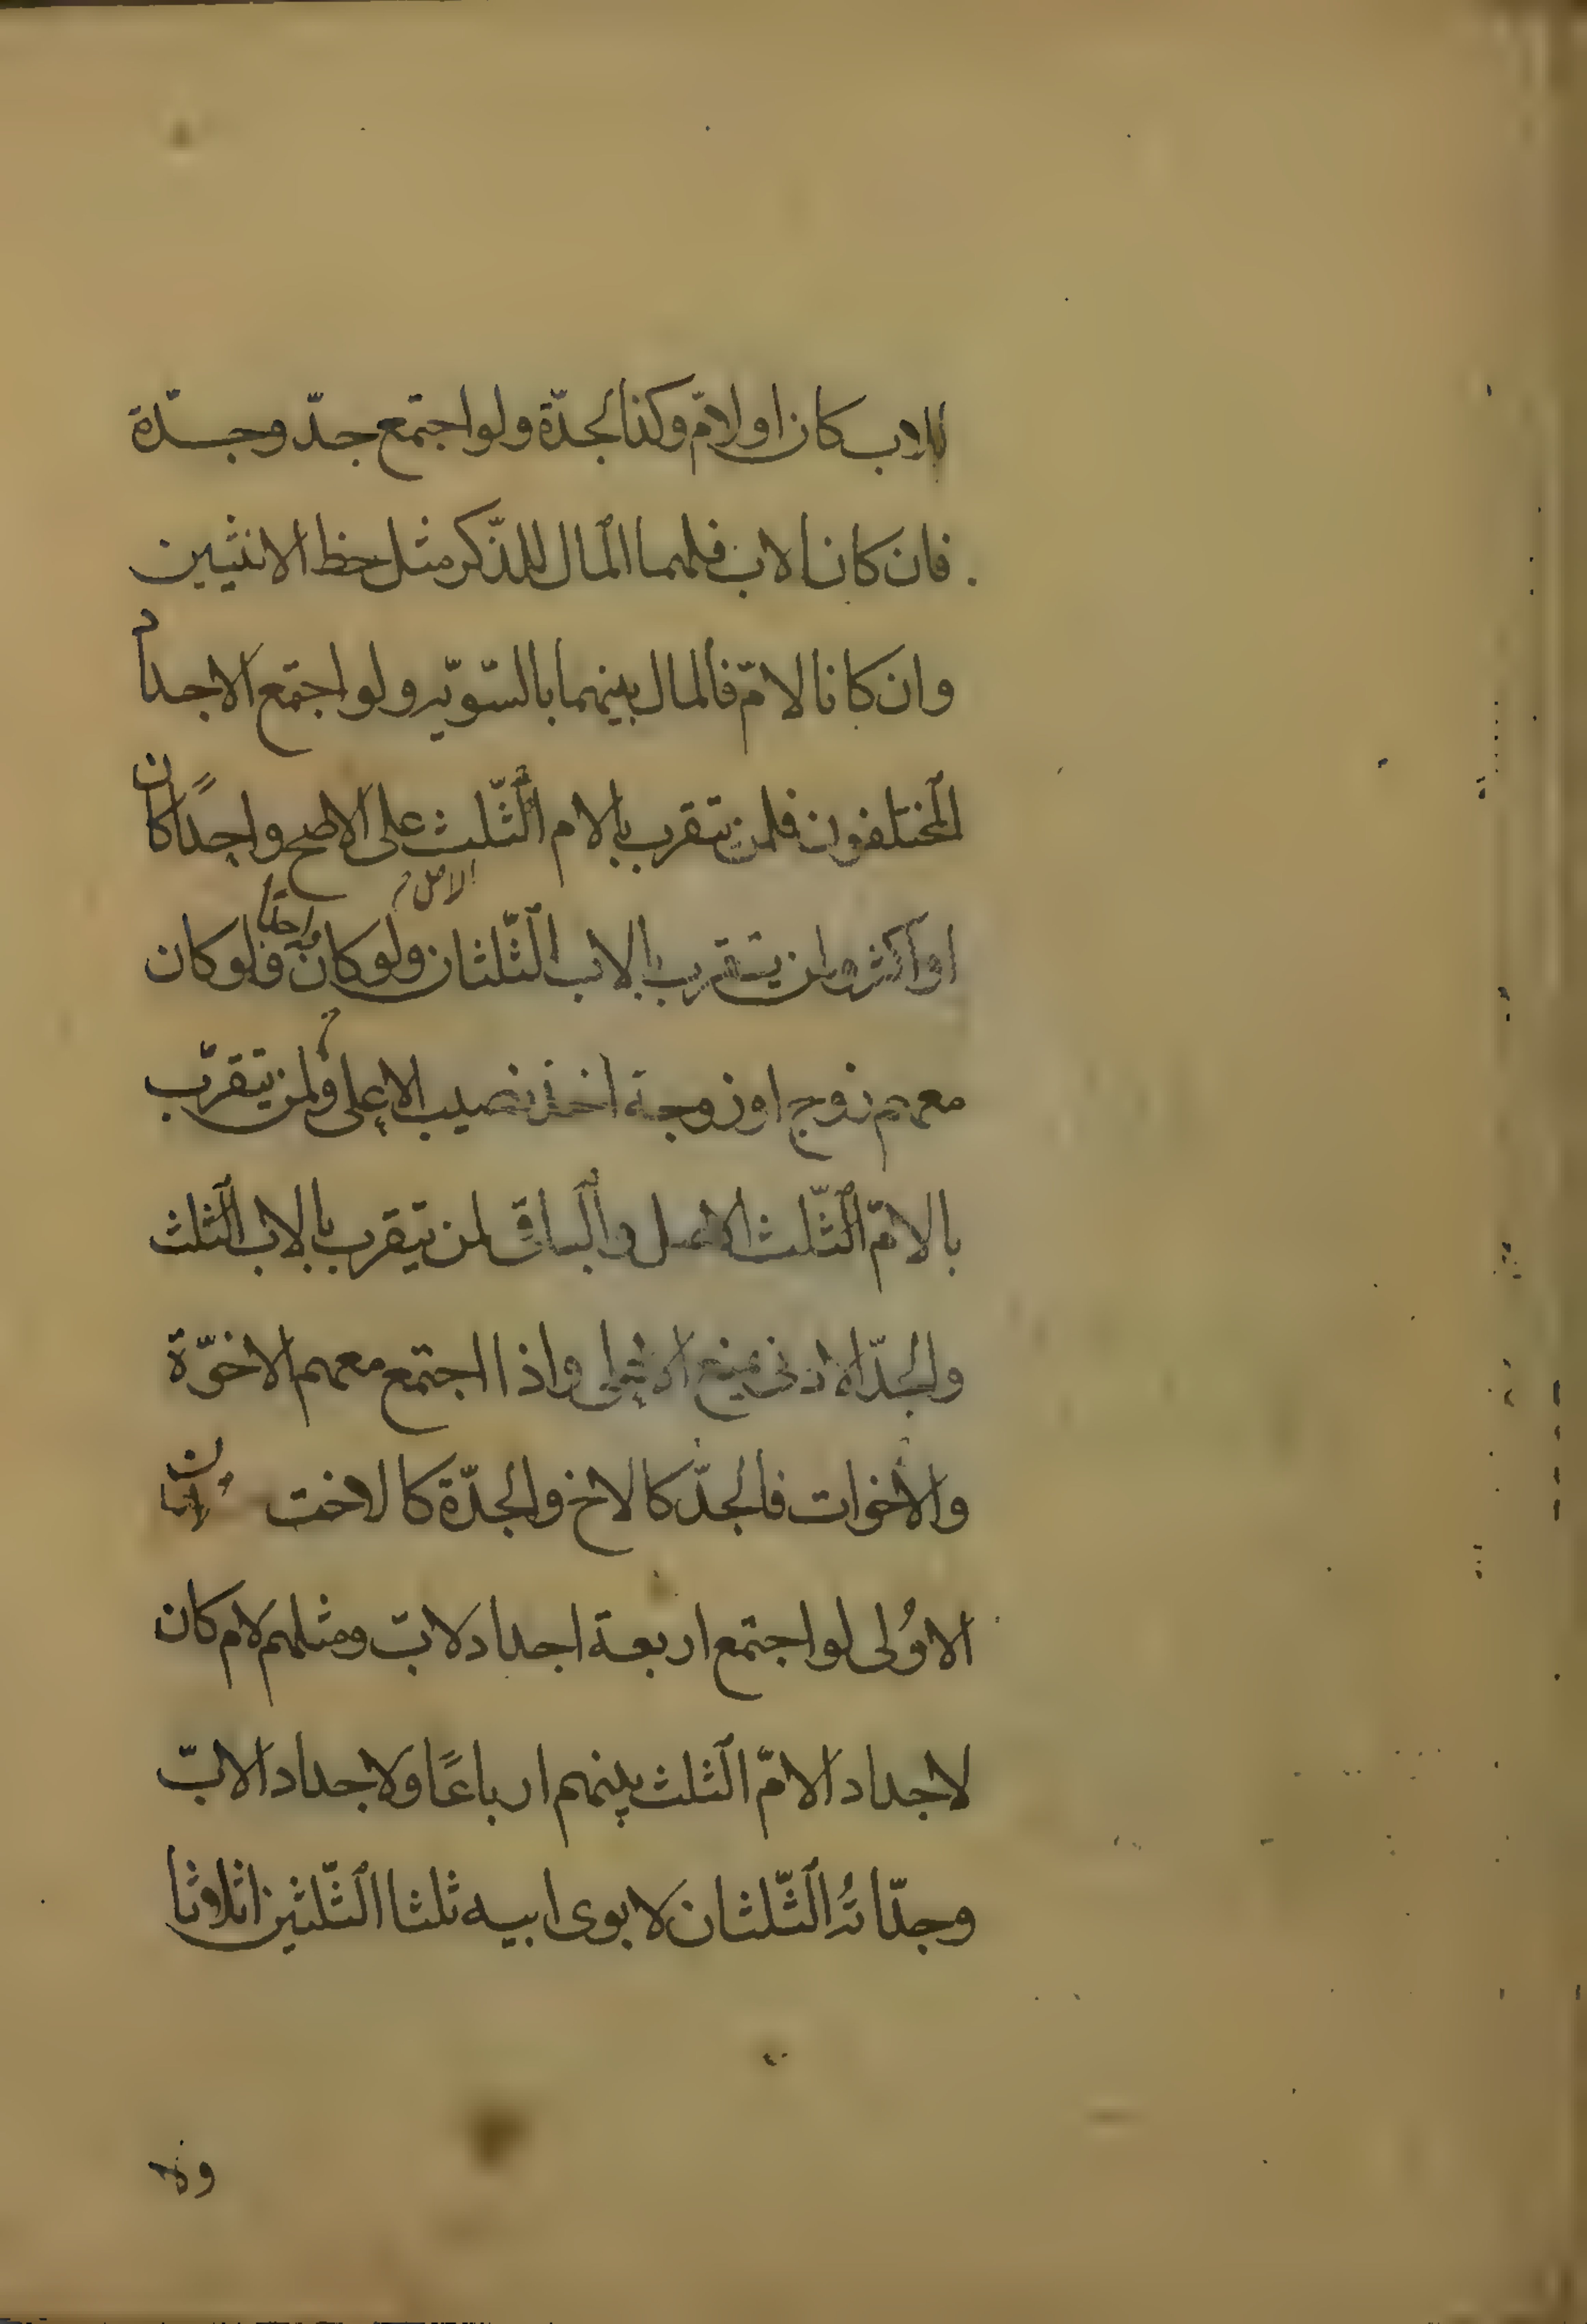 للاب كان او لامّ وكذا الجدّة ولو اجتمع جدّ وجدّة
فان كانا لاب فلهما المال للذّكر مثل حظ الانثيين
وان كانا لامّ فالمال بينهما بالسّويّه ولو اجتمع الاجداد
المختلفون فلمن يتقرب بالام الثّلث على الاصح واحدًا كان
او اكثر ولمن يتقرب بالاب الثّلثان ولو كان واحدا ولو كان
معهم زوج او زوجة اخذ نصيب الاعلى ولمن يتقرّب
بالامّ الثّلث الاصل والباقى لمن يتقرب بالاب الثلث
والجدّ الادنى يمنع الاعلى واذا اجتمع معهم الاخوّة
والاخوات فالجدّ كالاخ والجدّة كالاخت
الاوُلى لو اجتمع اربعة اجداد لابّ ومثلهم لام كان
لاجداد الامّ الثلث بينهم ارباعًا ولاجداد الابّ
وجدّاتُه الثّلثان لابوى ابيه ثلثا الثّلثين اثلاثا
ولا